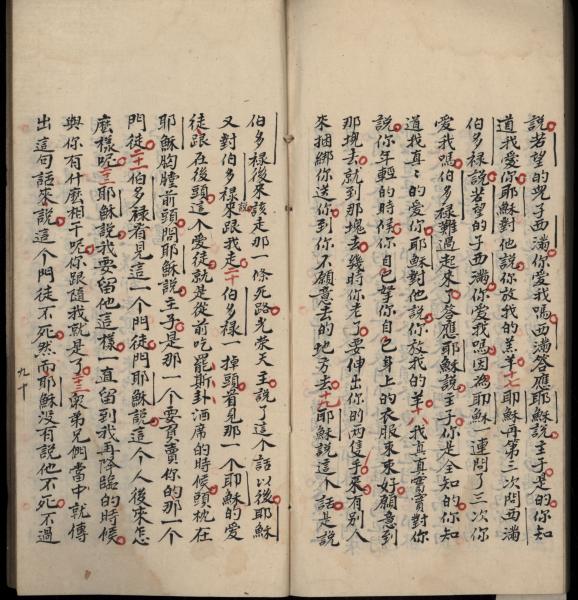 說若望的兒子西滿你愛我嗎西滿答應耶穌說主子是的你知
道我愛你耶穌對他說你放我的羔羊十七耶穌再第三次問西滿
伯多祿說若望的子西滿你愛我嗎因為耶穌一連問了三次你
愛我嗎伯多祿難過起來了答應耶穌說主子你是全知的你知
道我真真的愛你耶穌對他說你放我的羊十八我真真實實對你
說你年輕的時候你自己拏你自己身上的衣服來束好願意到
那塊去就到那塊去幾時你老了要伸出你的两隻手來有別人
來捆綁你送你到你不願意去的地方去十九耶穌說這个話是說
伯多祿後來該走那一條死路光荣天主說了這个話以後耶穌
又對伯多祿說來跟我走二十伯多祿一掉頭看見那一个耶穌的愛
徒跟在後頭這个愛徒就是從前吃罷斯卦酒席的時候頭枕在
耶穌胸膛前頭問耶穌說主子是那一个要賣你的那一个
門徒二十一伯多祿看見這一个門徒問耶穌說這个人後來怎
麼樣呢二十二耶穌說我要留他這樣一直留到我再降臨的時候
與你有什麼相干呢你跟隨我就是了二十三衆弟兄們當中就傳
出這句話來說這个門徒不死然而耶穌没有說他不死不過
九十